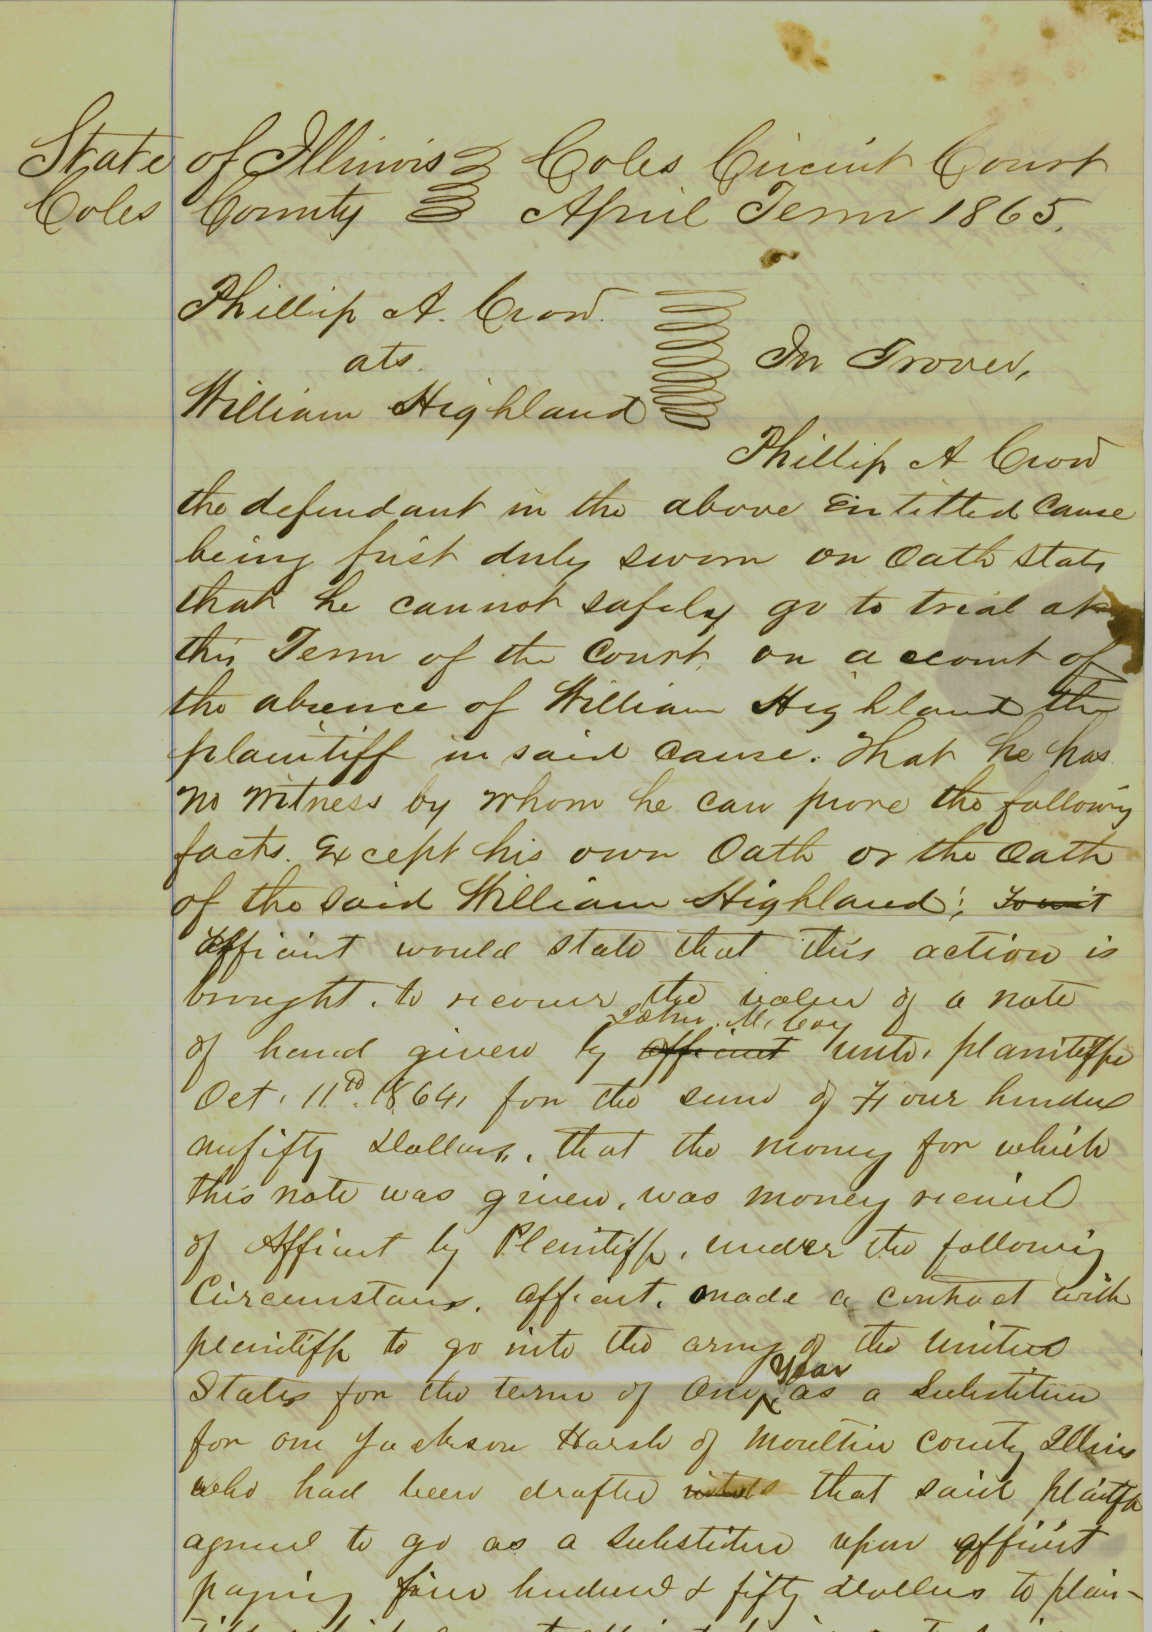 State of Illinois Coles Circuit Court
Coles County April Term 1865.
Phillip A. Crow
ats.
William Highland
In Trover,
Phillip A Crow
the defendant in the above Entitled Cause
being first duly sworn on Oath stats
that he cannot safely go to trial at
this Term of the Court on account of
the absence of William Highland the
plaintiff in said cause. That he has
no witness by whom he can prove the following
facts. Except his own Oath or the Oath
of the said William Highland; Towit
Affiant would state that this action is
brought to recover the value of a note
John McCoy
of hand given by affiant unto plaintiff
Oct. 11th 1864, for the sum of Four hundred
fifty Dollars, that the money for which
this note was given, was money received
of Affiant by Plaintiff, under the following
Circumstances. Affiant made a contract with
plaintiff to go into the army of the United
year
States for the term of One as a Substitute
for one Jackson Harsh of Moultrie County Illinois
who had been drafted that said plaintiff
agreed to go as a substitute upon affiant
paying five hundred & fifty dollars to plain-